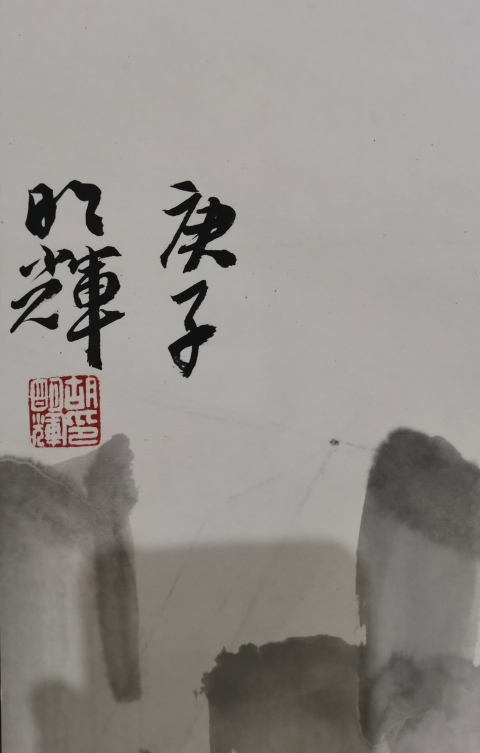 庚子
明輝
胡印
明輝